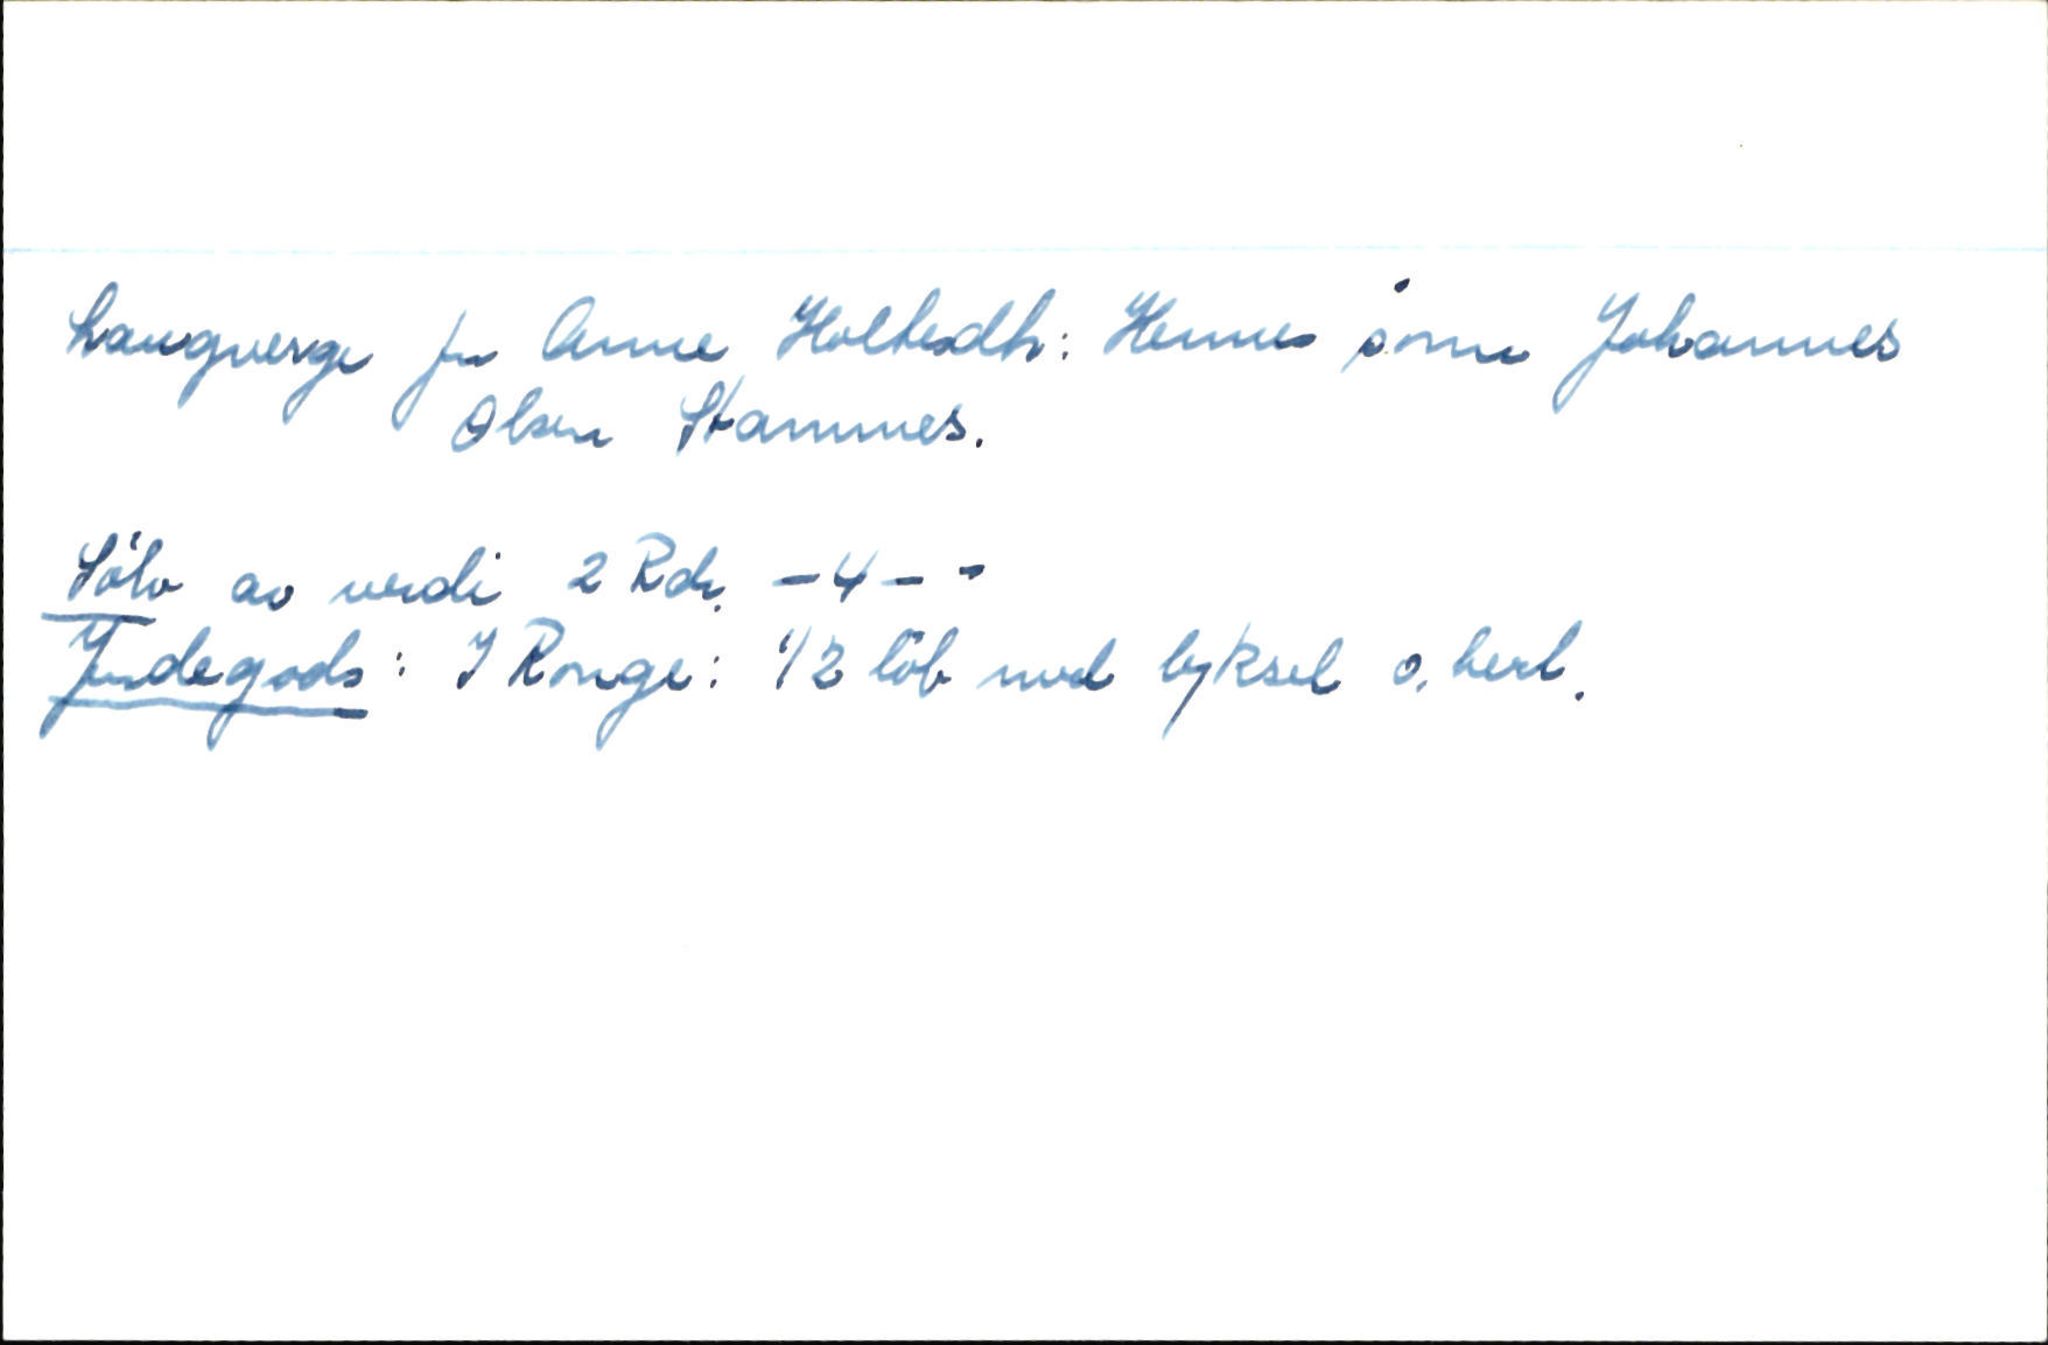 Laugverge for Anne Holtesdtr: Hennes sönn Johannes
Olsen Stamnes.
Sölv av verdi 2 Rdr. - 4 - -
Jordegods: I Ronge: 1/2 löb med byksel o. herl.